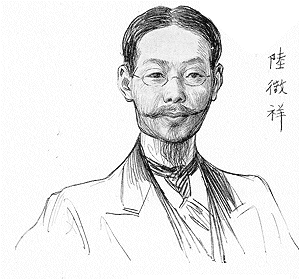 陸徵祥